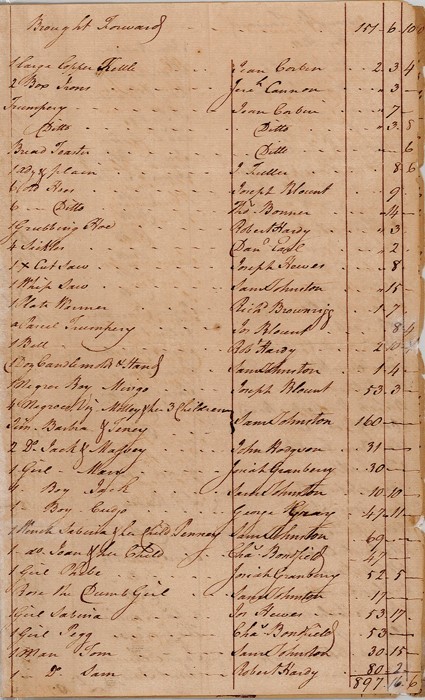 Brought Forward 151 6 10
1 Large Copper Kettle Jean Corbin 2 3 4
2 Box Irons Jerh. Cannon " 3 —
Trumpery Jean Corbin " 7 —
Ditto Ditto " 3 8
Bread Toaster Ditto 6
1 adz & plain J Fuller 8 6
6 old Hoes Joseph Blount 9
6 — Ditto Thos. Bonner " 4 —
1 Grubbing Hoe Robert Hardy " 3
4 Sickles Danl. Earl " 2 —
1 X Cut Saw Joseph Hewes " 8
1 Whip Saw Saml Johnston " 15 —
1 Plate Warmer Richd. Brownrigg 1 7
a Parcel Trumpery Jos Blount 8 4
1 Bell Robt. Hardy 2
1 Boy & Hand Saml Johnston 1 4 —
1 Negroe Boy Mingo Joseph Blount 53 3 —
4 Negroes Viz. Milley & her 3 Children
Jim Barbra & Teney Saml Johnston 160 —
2 Do. Jack & Massey John Hodgson 31 —
1 Girl Mary Josiah Granberry 30 —
1 Boy Jack Saml Johnston 10 10
1 Boy Cugo George Gray 47 11
1 Wench Sabina & her Child Pennny Saml Johnston 69 —
1 do. Joan & her Child Chas. Bonfield 47 —
1 Girl Phebe Josiah Granberry 52 5 —
Rose the Dumb Girl Saml Johnston 17 —
1 Girl Sabina Jos Hewes 53 17 —
1 Girl Pegg Chas. Bonfield 53 —
1 Man Tom Saml Johnston 30 15
1 Do. Sam Robert Hardy 80 2 —
897 16 6